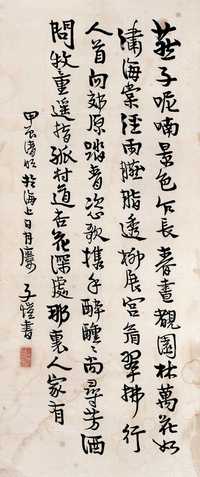 燕子呢喃景色乍長春晝覩園林萬花如
繡海棠經雨臙脂透柳展宮眉翠拂行
人首向郊原踏青恣歌携手醉醺〻尚尋芳酒
問牧童遥指孤村道杏花深處那裏人家有
甲辰清明於海上日月樓 子愷書